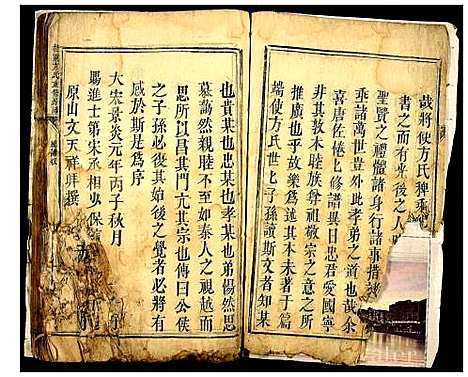 哉將使方氏
書之而有光後之人
聖賢之禮體諸身行諸事措
乘諸萬世豈外此孝弟之道也哉余
喜唐佐倦匕修譜異日忠君愛國寧
非其教本睦族尊祖敬宗之意之所
推廣也乎故樂爲述其本末著于篇
端使方氏世匕子孫讀斯文者知某
也貴某也忠某也孝某也弟惕然思
慕藹然親睦不至如泰人之視越而
思所以昌其門亢其宗也傳曰公侯
之子孫必後其始後之覺者必將有
感於斯是爲序
大宋景炎元年丙子秋月
賜進士第宋丞相兼少保
原山文天祥拜撰